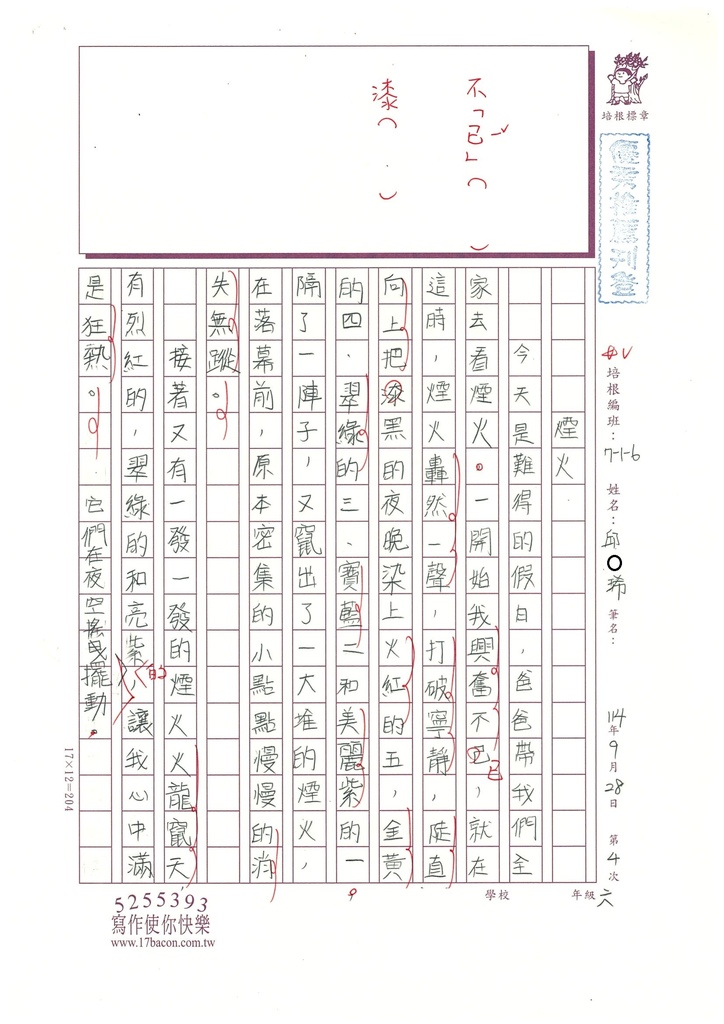 不「已」（ ）
漆（ ）
培根標章
優秀推薦刊登
培根編班：7-1-6 姓名：邱〇琋 筆名： 114年9月28日 第4次
年級 六
學校
煙火
今天是難得的假日，爸爸帶我們全
家去看煙火。一開始我興奮不已，就在
這時，煙火轟然一聲，打破寧靜，陡直
向上把漆黑的夜晚染上火紅的五，金黃
的四、翠綠的三、寶藍二和美麗紫的一
隔了一陣子，又竄出了一大堆的煙火，
在落幕前，原本密集的小點點慢慢的消
失無蹤。
接著又有一發一發的煙火火龍竄天，
有烈紅的，翠綠的和亮紫的，讓我心中滿
是狂熱。它們在夜空搖曳擺動。
17×12=204
5255393
寫作使你快樂
www.17bacon.com.tw